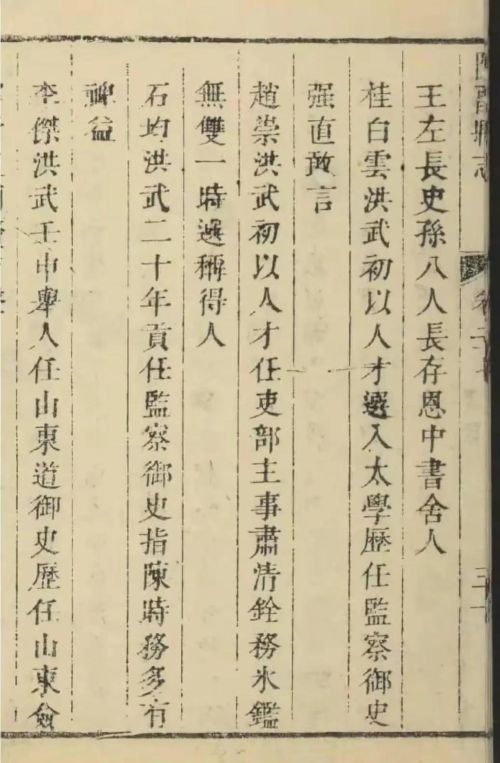 王左長史孫八人長存恩中書舍人
桂白雲洪武初以人才選入太學歷任監察御史
强直敢言
趙崇洪武初以人才任吏部主事肅清銓務氷鑑
無雙一時選稱得人
石均洪武二十年貢任監察御史指陳時務多有
裨益
李傑洪武壬申舉人任山東道御史歷任山東僉